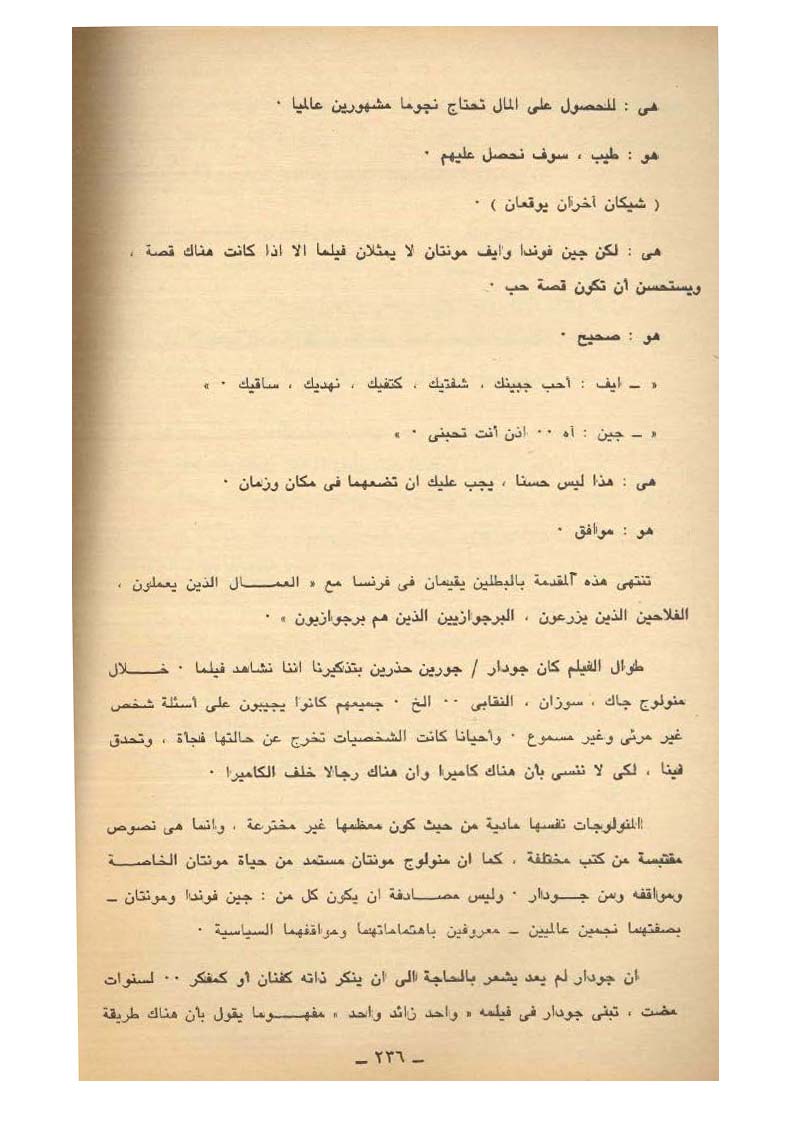 هى : للحصول على المال تحتاج نجوما مشهورين عالميا ٠
هو : طيب ، سوف نحصل عليهم ٠
( شيكان آخران يوقعان ) ٠
هى : لكن جين فوندا وايف مونتان لا يمثلان فيلما الا اذا كانت هناك قصة ،
ويستحسن أن تكون قصة حب ٠
هو : صحيح ٠
« ــ ايف : أحب جبينك ، شفتيك ، كتفيك ، نهديك ، ساقيك ٠ »
« ــ جين : آه ٠٠ اذن أنت تحبنى ٠ »
هى : هذا ليس حسنا ، يجب عليك ان تضعهما فى مكان وزمان ٠
هو : موافق ٠
تنتهى هذه المقدمة بالبطلين يقيمان فى فرنسا مع « العمـــال الذين يعملون ،
الفلاحين الذين يزرعون ، البرجوازيين الذين هم برجوازيون » ٠
طوال الفيلم كان جودار / جورين حذرين بتذكيرنا اننا نشاهد فيلما ٠ خـــلال
منولوج جاك ، سوزان ، النقابى ٠٠ الخ ٠ جميعهم كانوا يجيبون على أسئلة شخص
غير مرئى وغير مسموع ٠ وأحيانا كانت الشخصيات تخرج عن حالتها فجأة ، وتحدق
فينا ، لكى لا ننسى بأن هناك كاميرا وان هناك رجالا خلف الكاميرا ٠
المنولوجات نفسها مادية من حيث كون معظمها غير مخترعة ، وانما هى نصوص
مقتبسة من كتب مختلفة ، كما ان منولوج مونتان مستمد من حياة مونتان الخاصـــة
ومواقفه ومن جـــودار ٠ وليس مصـــادفة ان يكون كل من : جين فوندا ومونتان ــ
بصفتهما نجمين عالميين ــ معروفين باهتماماتهما ومواقفهما السياسية ٠
ان جودار لم يعد يشعر بالحاجة الى ان ينكر ذاته كفنان أو كمفكر ٠٠ لسنوات
مضت ، تبنى جودار فى فيلمه « واحد زائد واحد » مفهـــوما يقول بأن هناك طريقة
ــ ٢٣٦ ــ